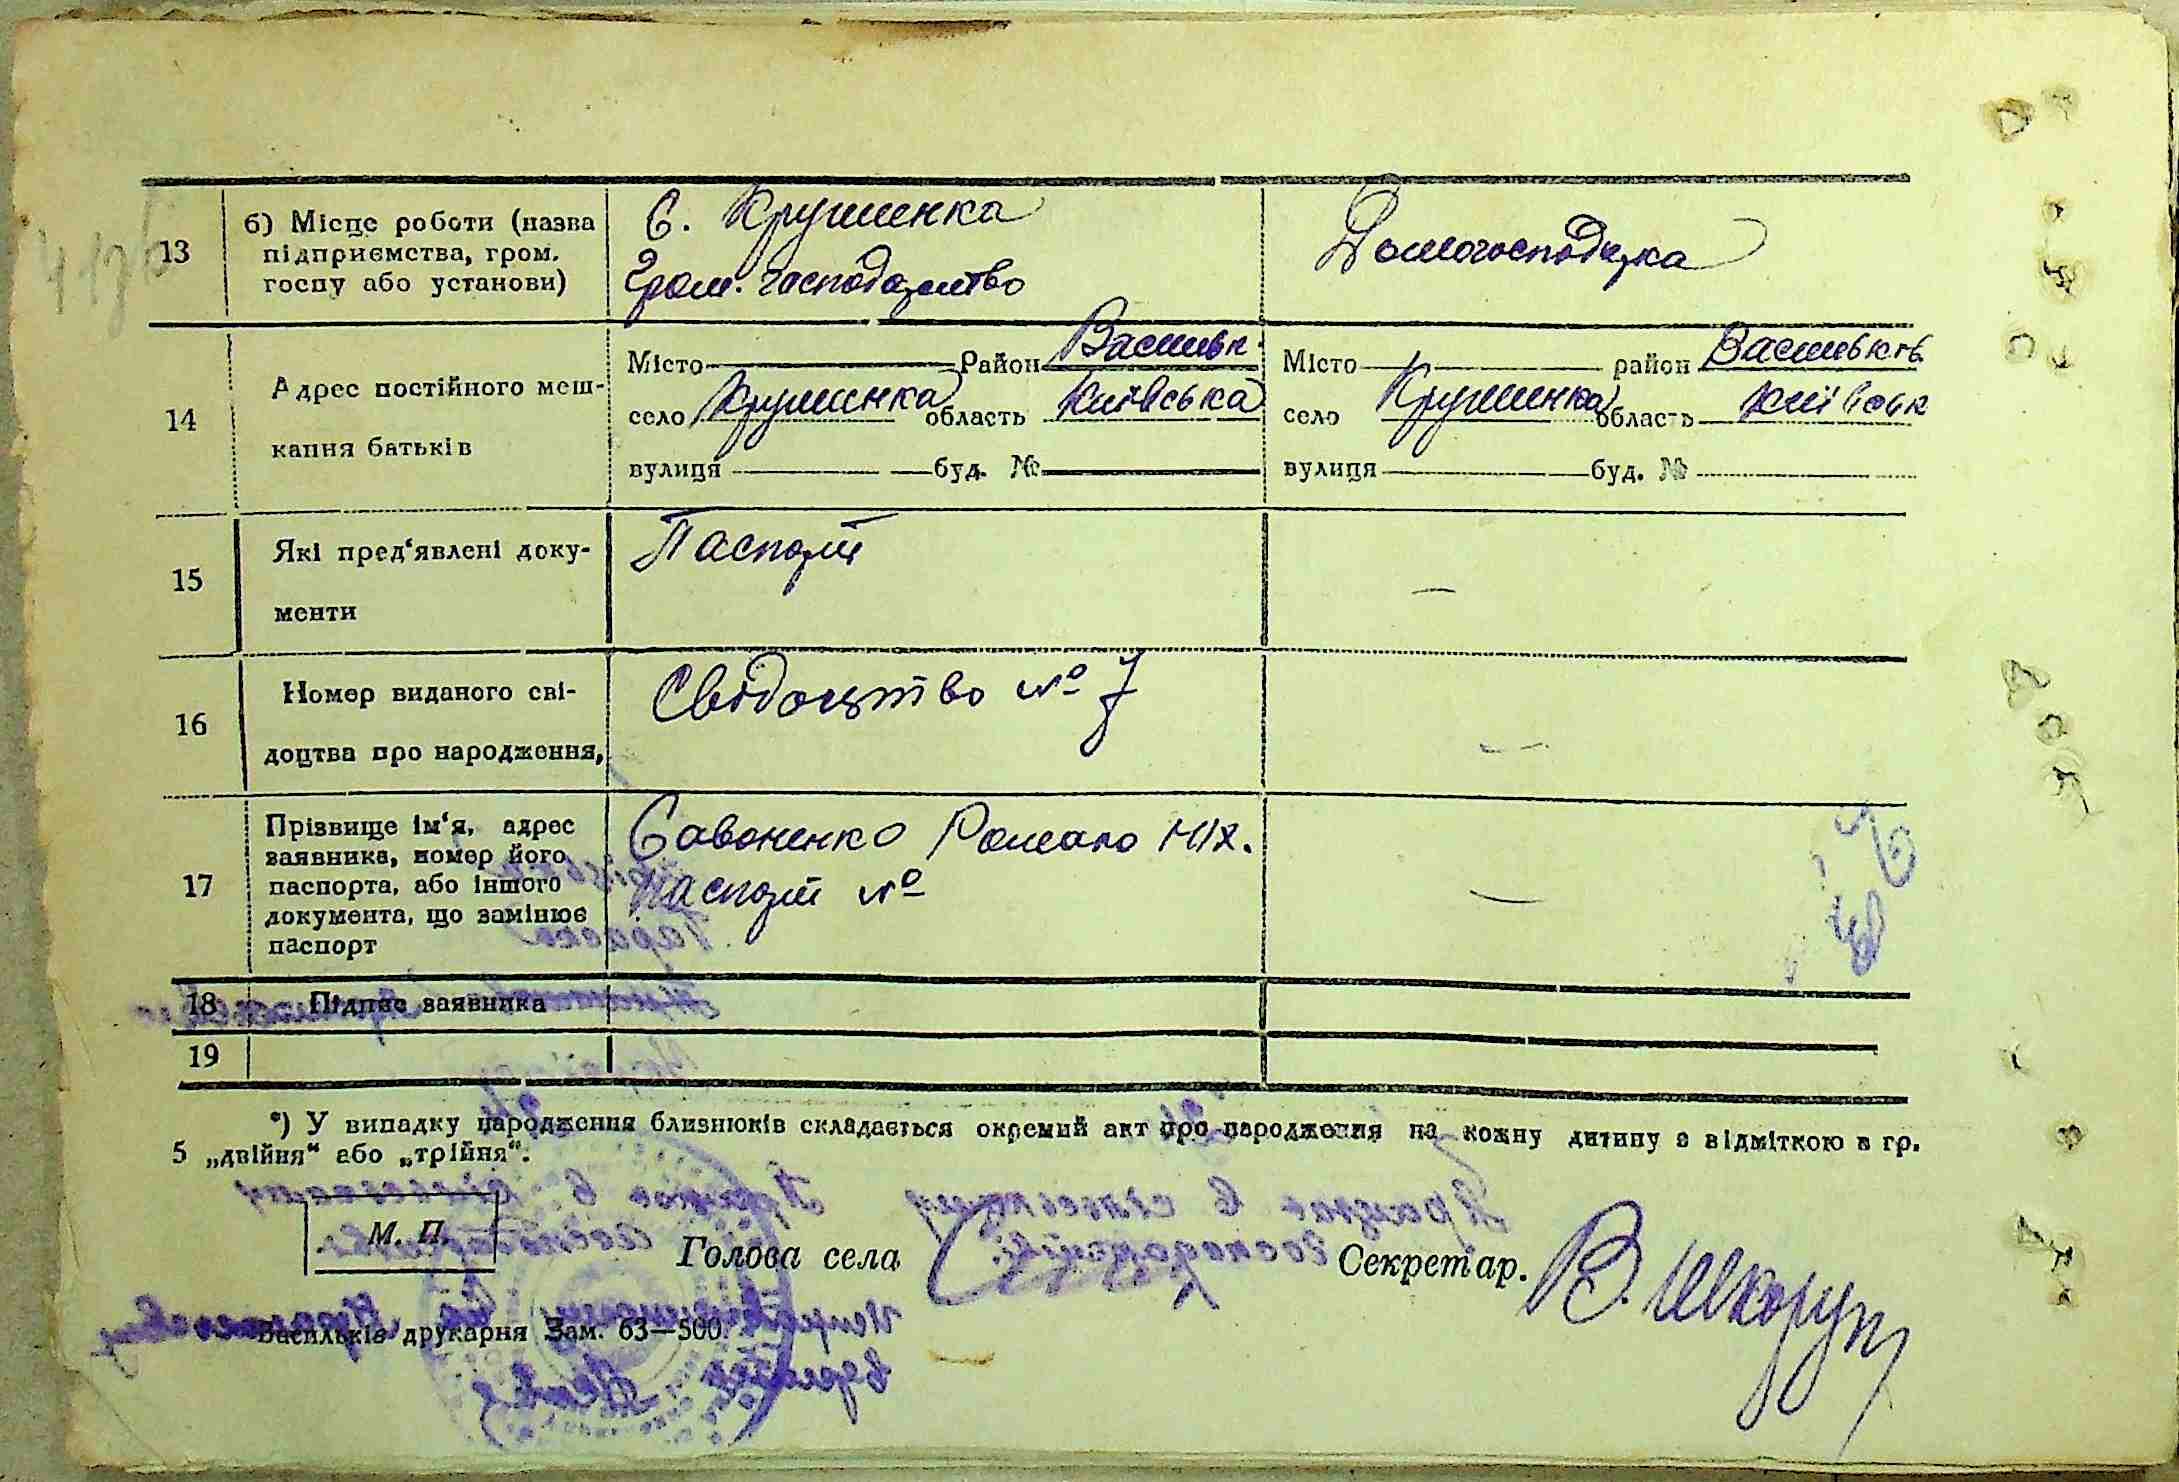 13
б) Місце роботи (назва
підприємства, гром.
госпу або установи)
с. Крушинка
Гром. господарство
Домогосподарка
14
Адрес постійного меш-
кання батьків
Місто Район Васильк.
село Крушинка область Київська
вулиця буд. №
Місто район Васильків.
село Крушинка область Київськ
вулиця буд. №
15
Які пред'явлені доку-
менти
Паспорт
—
16
Номер виданого сві-
доцтва про народження,
Свідоцтво № 7
—
17
Прізвище ім'я, адрес
заявника, номер його
паспорта, або іншого
документа, що замінює
паспорт
Савоненко Романо Мих.
паспорт №
—
18
Підпис заявника
19
*) У випадку народження близнюків складається окремий акт про народження на кожну дитину з відміткою в гр.
5 „двійня“ або „трійня“.
М. П.
Голова села
Секретар.
В. Шкоруп
Васильків друкарня Зам. 63—500.